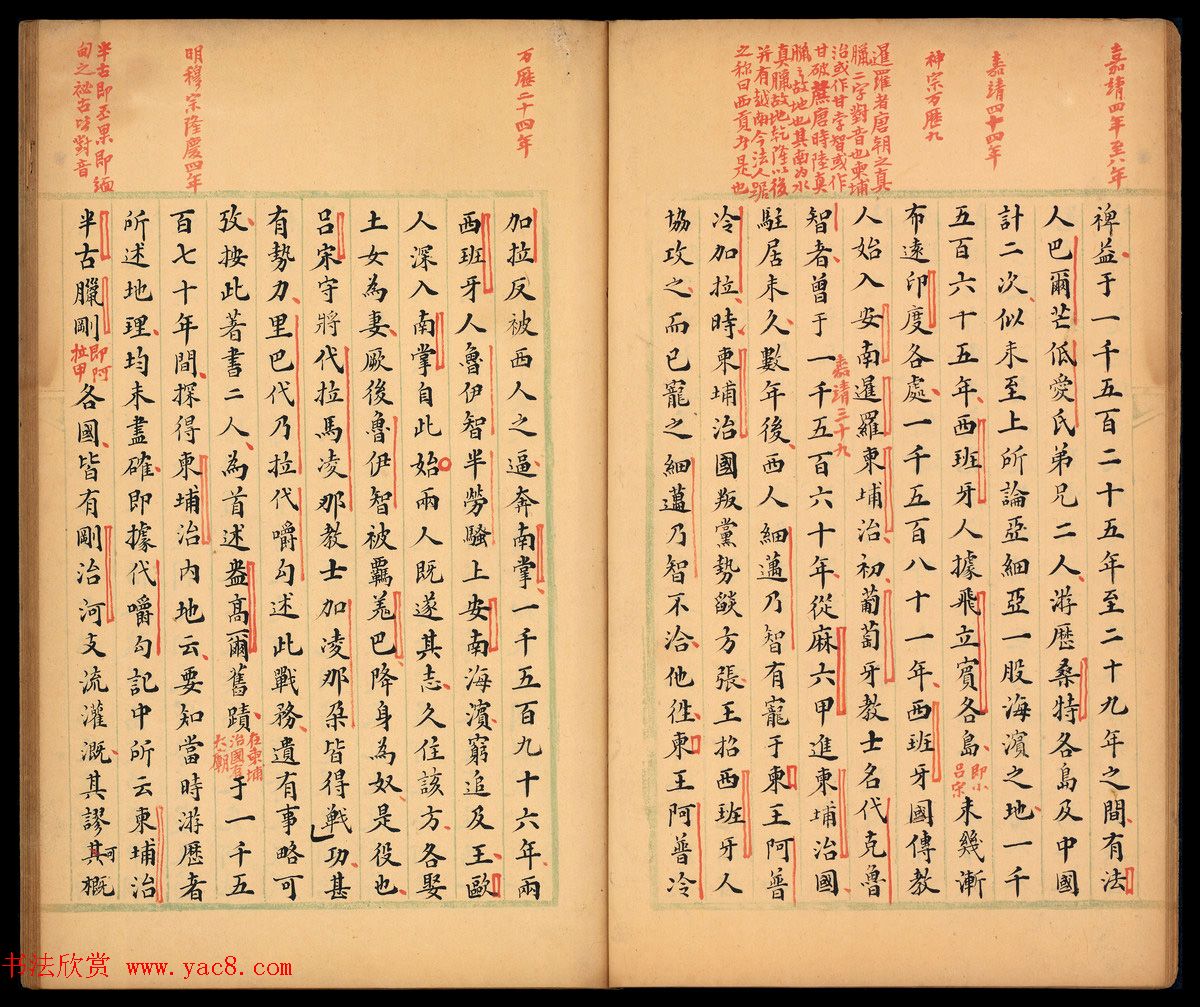 嘉靖四年至八年
嘉靖四十四年
神宗万歷九
暹羅者唐朝之真
臘二字對音也柬埔
治或作甘孛智或作
甘破蔗唐時陸真
臘之故地也其南為水
真臘故地乾隆以後
并有越南今法人踞
之称曰西貢乃是也
裨益于一千五百二十五年至二十九年之間有法
人巴爾芒低愛氏弟兄二人游歷桑特各島及中國
計二次似未至上所論亞細亞一股海濱之地一千
五百六十五年西班牙人據飛立賓各島即小呂宋未幾漸
布遠印度各處一千五百八十一年西班牙國傳教
人始入安南暹羅柬埔治初葡萄牙教士名代克魯
嘉靖三十九
智者曾于一千五百六十年從麻六甲進柬埔治國
駐居未久數年後西人細邁乃智有寵于柬王阿普
冷加拉時柬埔治國叛黨勢燄方張王招西班牙人
協攻之而已寵之細邁乃智不洽他徃柬王阿普冷
万歷二十四年
明穆宗隆慶四年
半古即丕果即緬
甸之秘古皆對音
加拉反被西人之逼奔南掌一千五百九十六年兩
西班牙人魯伊智半勞騷上安南海濱窮追及王歐
人深入南掌自此始兩人既遂其志久住該方各娶
土女為妻厥後魯伊智被覊羗巴降身為奴是役也
呂宋守將代拉馬凌那教士加凌那朶皆得戰功甚
有勢力里巴代乃拉代嚼勾述此戰務遺有事略可
攷按此著書二人為首述盎高爾舊蹟在柬埔治國有大廟于一千五
百七十年間探得柬埔治內地云要知當時游歷者
所述地理均未盡確即據代嚼勾記中所云柬埔治
半古臘剛即阿拉甲各國皆有剛治河支流灌溉其謬其可概
书法欣赏 www.yac8.com